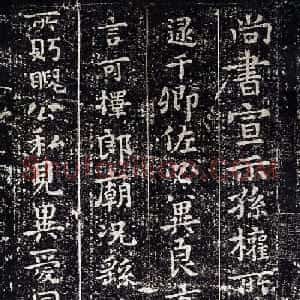 尚書宣示孫權所
逮于卿佐必冀良
言可擇郎廟況繇
所眄睨公私見異愛同